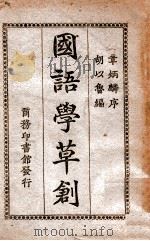 章炳麟序
胡以魯編
國語學草創
商務印書館發行
www.topedu.com